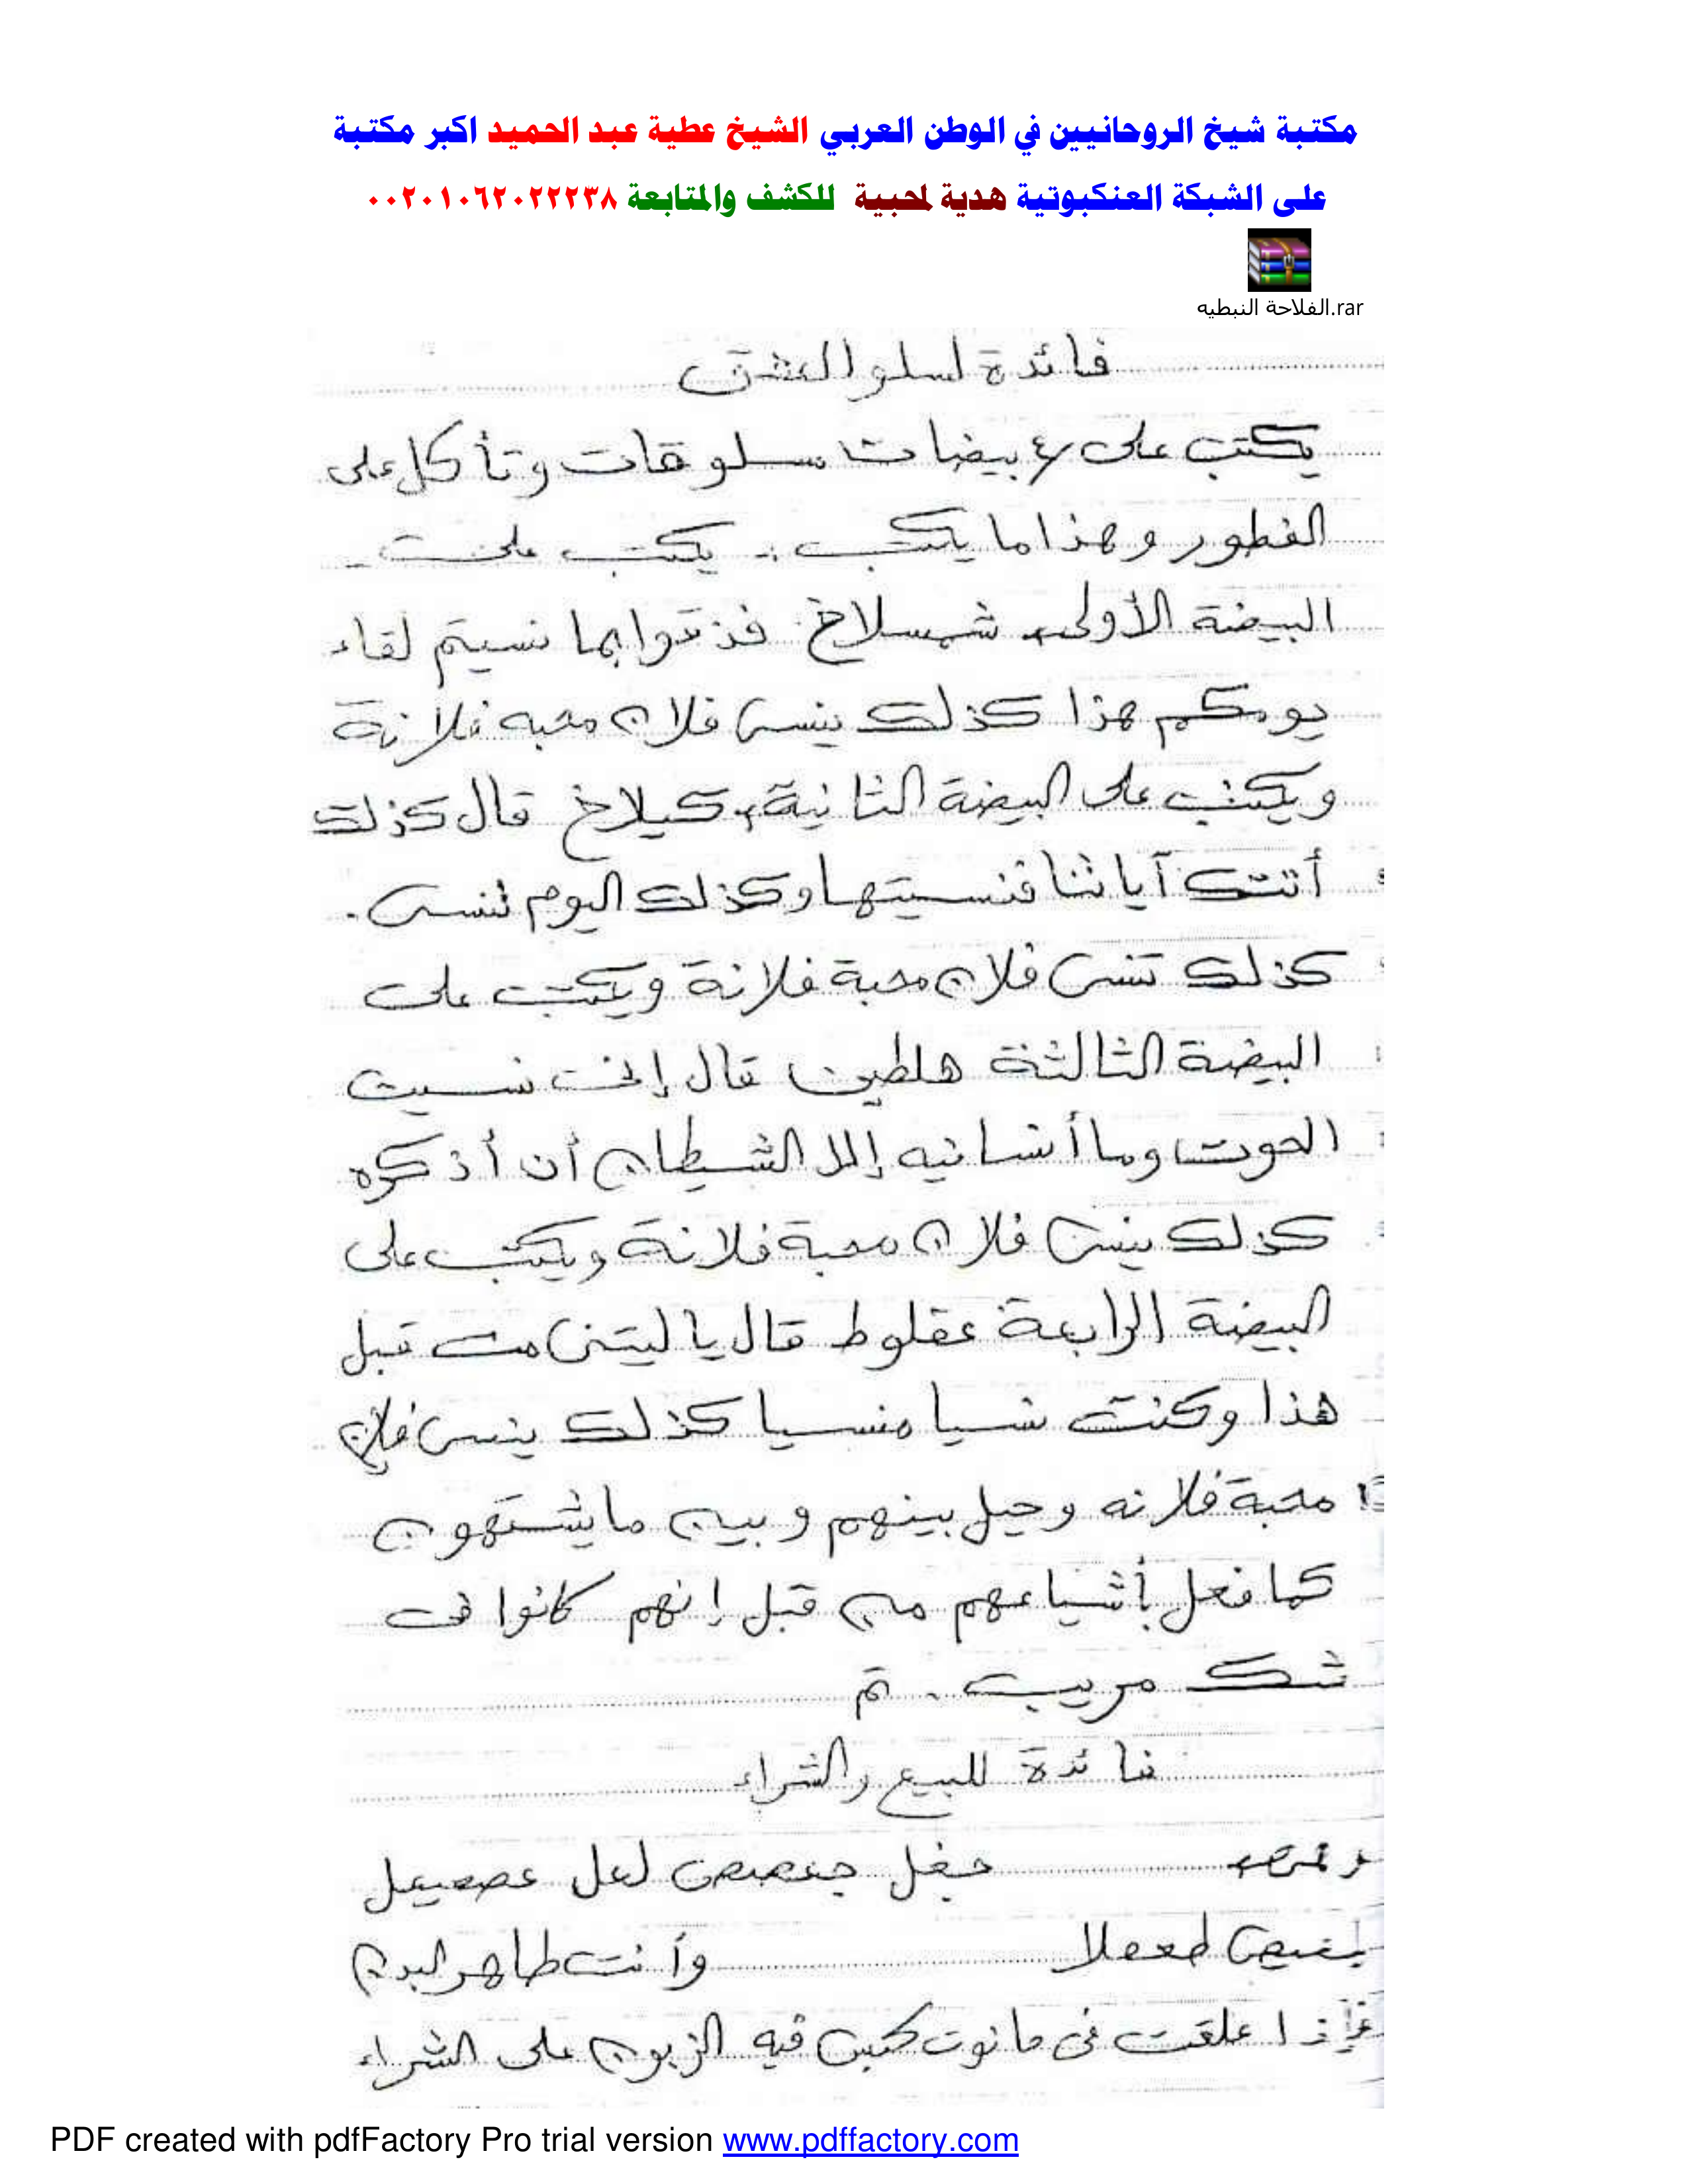 مكتبة شيخ الروحانيين في الوطن العربي الشيخ عطية عبد الحميد اكبر مكتبة
على الشبكة العنكبوتية هدية لمحبية للكشف والمتابعة ٠٠٢٠١٠٦٢٠٢٢٢٣٨
الفلاحة النبطيه.rar
فائدة لسلو العشق
يكتب على ٤ بيضات سلوقات وتأكل على
الفطور وهذا ما يكتب .. يكتب على
البيضة الأولى شمسلاخ فذقوا بما نسيتم لقاء
يومكم هذا كذلك ينسى فلان محبه فلانة
ويكتب على البيضة الثانية كيلاخ قال كذلك
أتتك آياتنا فنسيتها وكذلك اليوم تنسى .
كذلك تنسى فلان محبة فلانة ويكتب على
البيضة الثالثة هلطين قال إني نسيت
الحوت وما أنسانيه إلا الشيطان أن أذكره
كذلك ينسى فلان محبة فلانة ويكتب على
البيضة الرابعة عقلوط قال يا ليتني مت قبل
هذا وكنت نسيا منسيا كذلك ينسى فلان
محبة فلانه وحيل بينهم وبين ما يشتهون
كما فعل بأشياعهم من قبل إنهم كانوا في
شك مريب . تم
فائدة للبيع والشراء
جغل لعل
وأنت طاهر البدن
فإذا علقت في حانوت كبس فيه الزبون على الشراء
PDF created with pdfFactory Pro trial version www.pdffactory.com